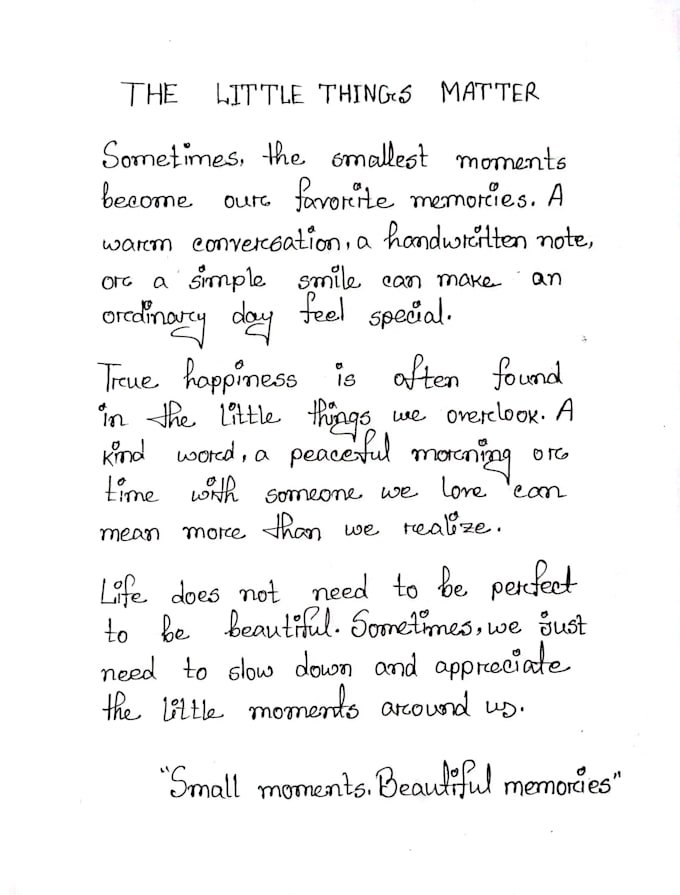 THE LITTLE THINGS MATTER
Sometimes, the smallest moments
become our favorite memories. A
warm conversation, a handwritten note,
or a simple smile can make an
ordinary day feel special.
True happiness is often found
in the little things we overlook. A
kind word, a peaceful morning or
time with someone we love can
mean more than we realize.
Life does not need to be perfect
to be beautiful. Sometimes, we just
need to slow down and appreciate
the little moments around us.
"Small moments. Beautiful memories"